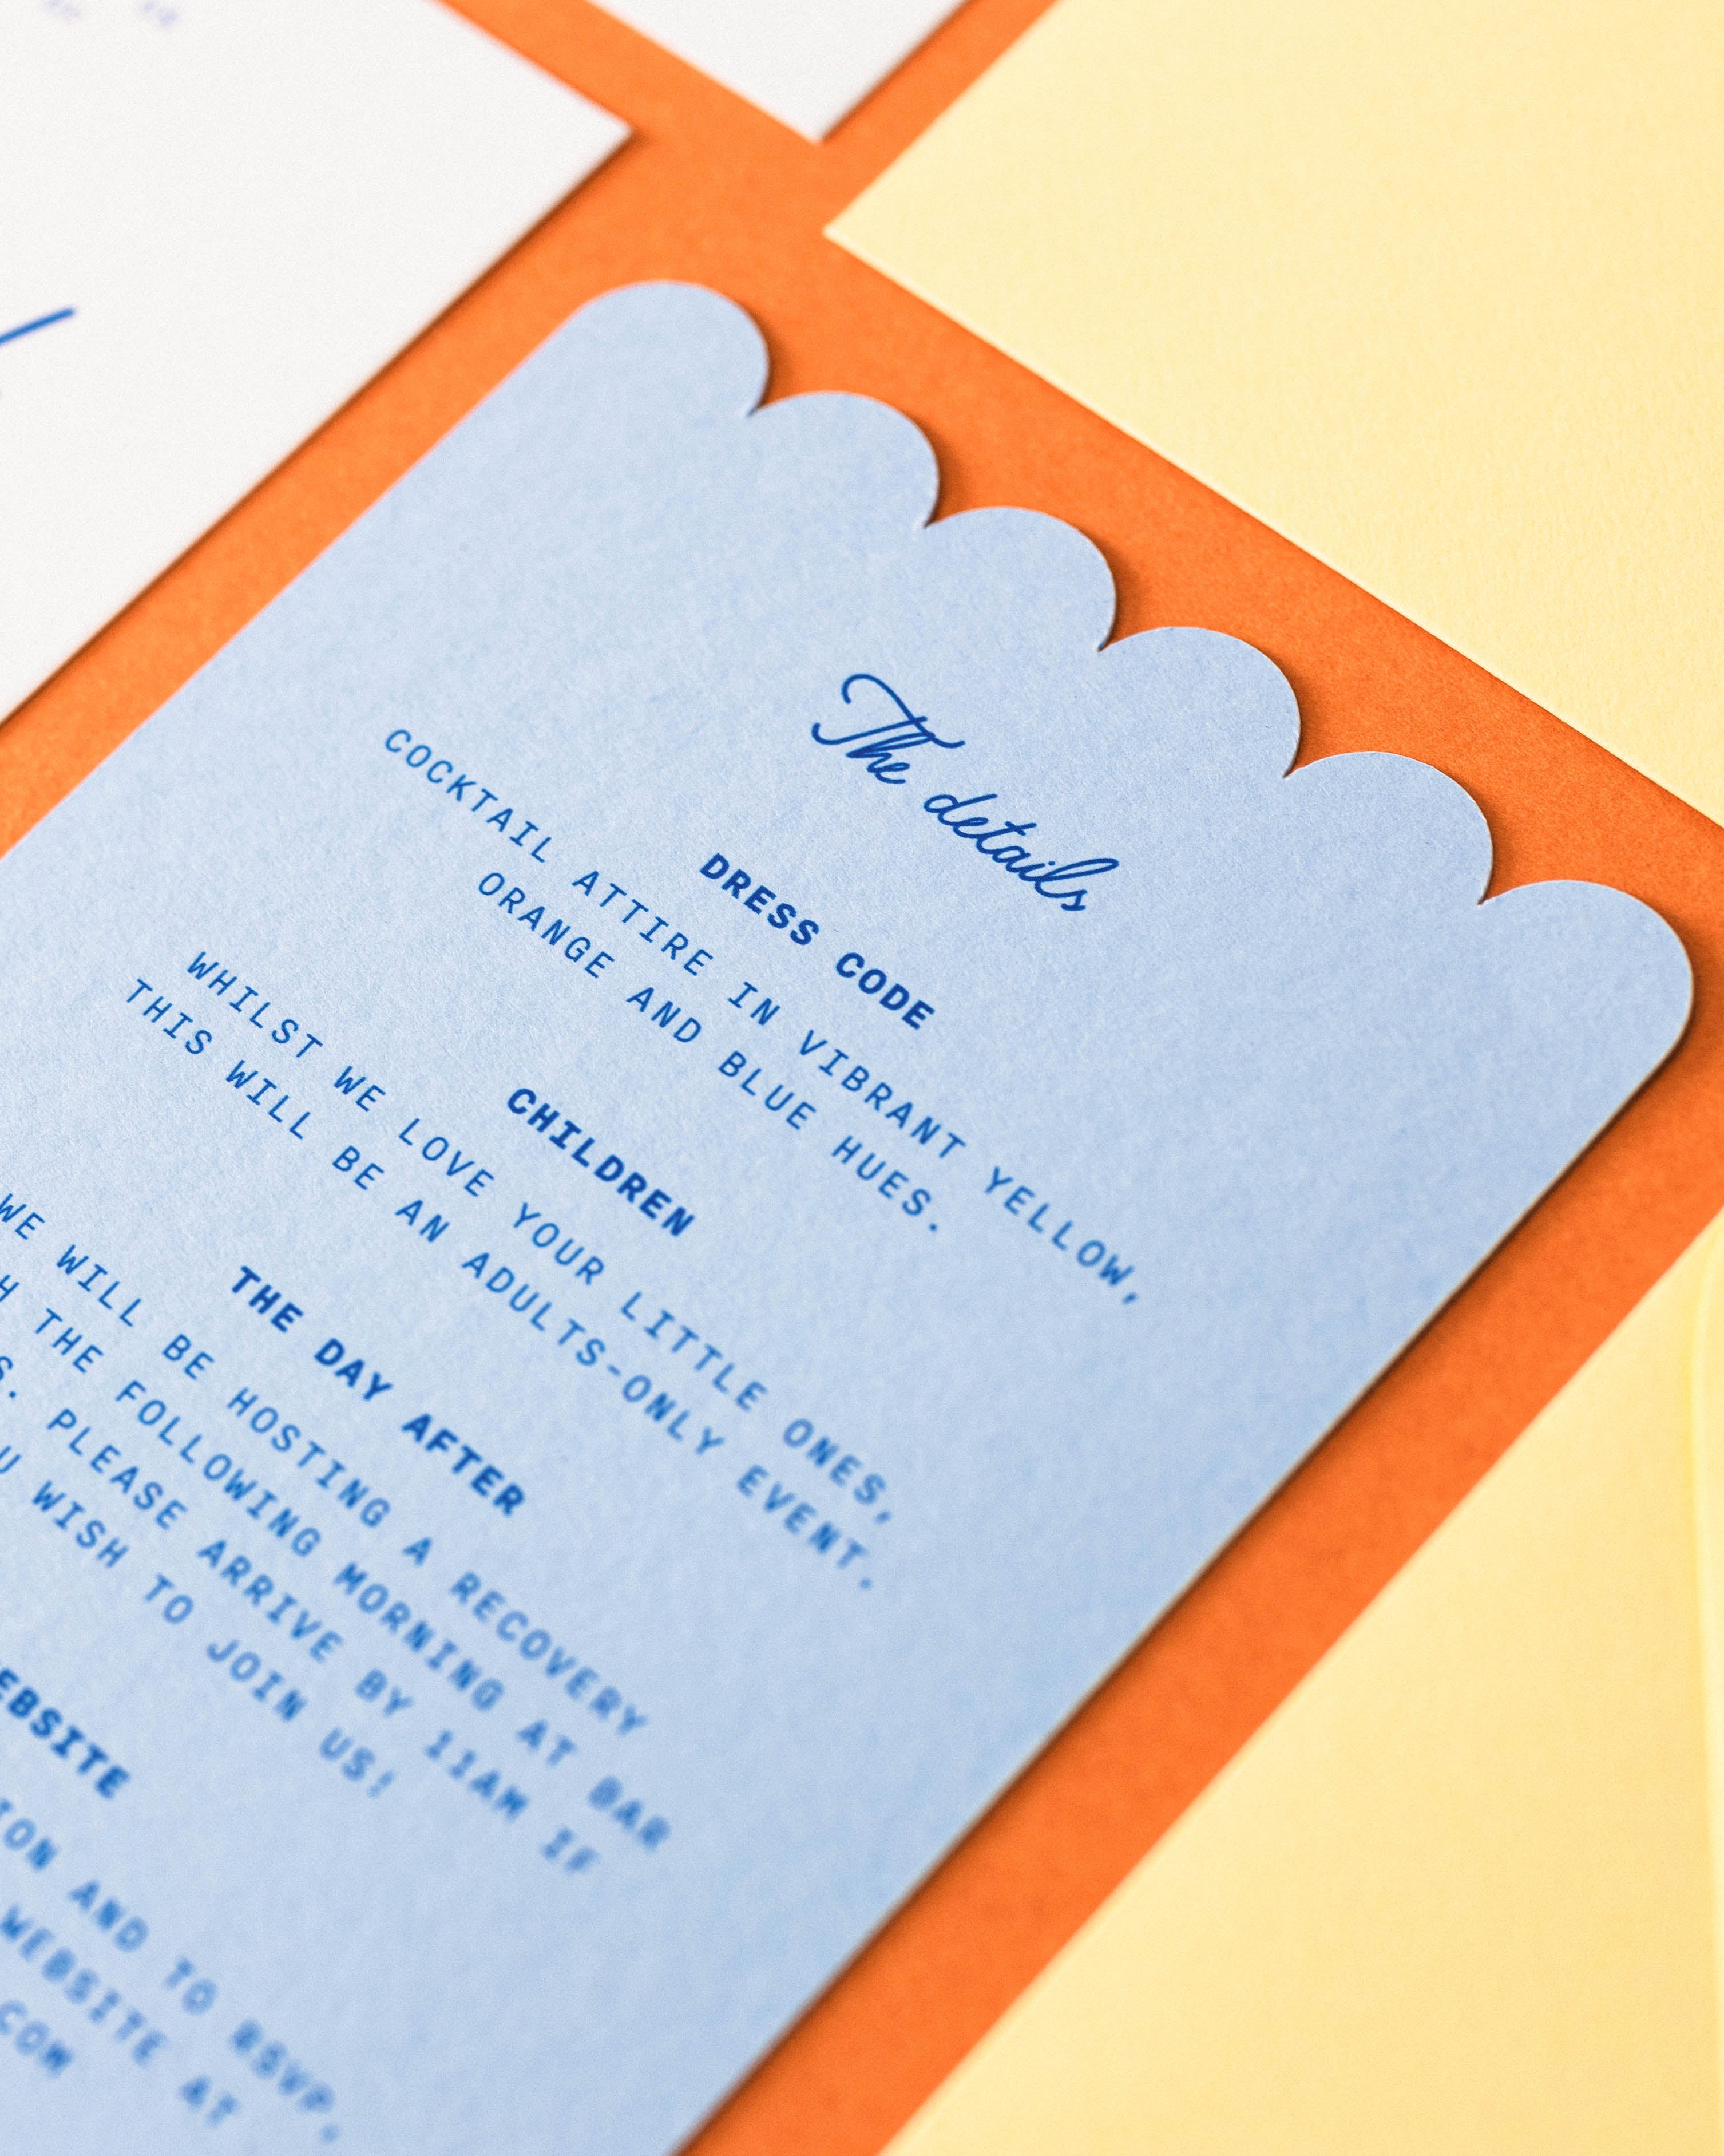 The details
DRESS CODE
COCKTAIL ATTIRE IN VIBRANT YELLOW,
ORANGE AND BLUE HUES.
CHILDREN
WHILST WE LOVE YOUR LITTLE ONES,
THIS WILL BE AN ADULTS-ONLY EVENT.
THE DAY AFTER
WE WILL BE HOSTING A RECOVERY
THE FOLLOWING MORNING AT BAR
PLEASE ARRIVE BY 11AM IF
WISH TO JOIN US!
EBSITE
ION AND TO RSVP,
WEBSITE AT
COM